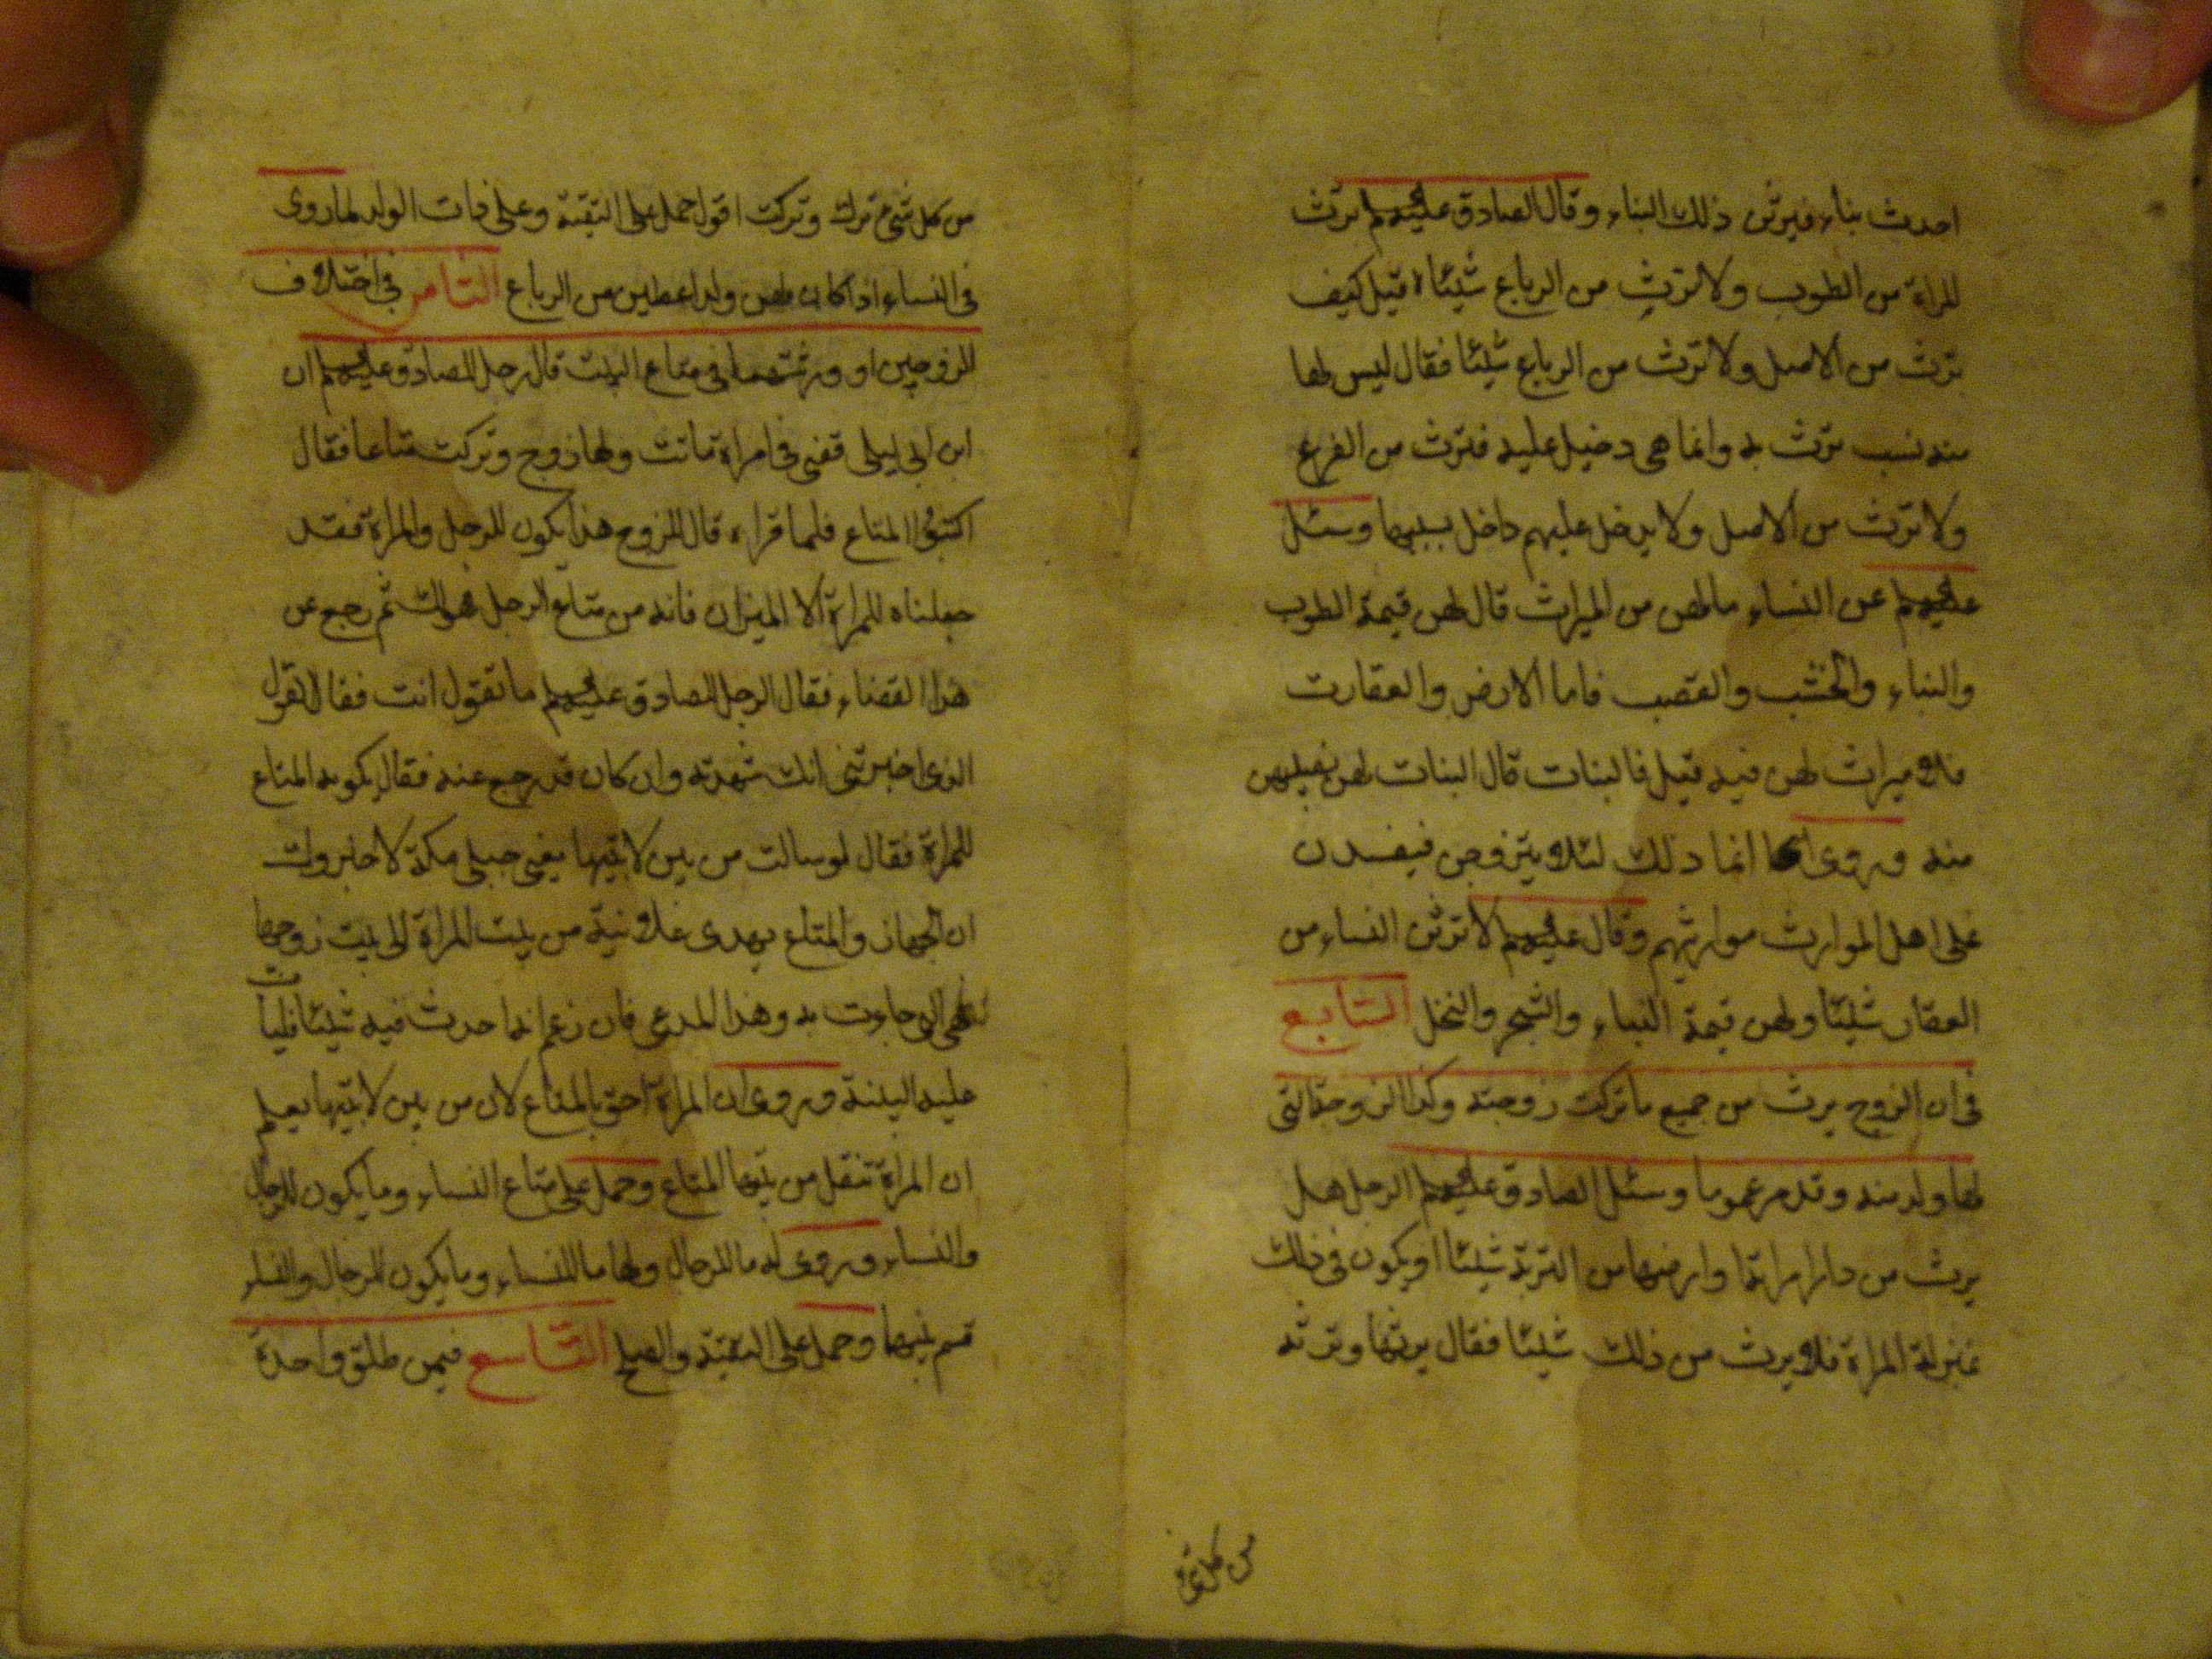 احدث بناء فيرثن ذلك البناء وقال الصادق عليهم ترث
المراة من الطوب ولا ترث من الرباع شيئا قيل كيف
ترث من الاصل ولا ترث من الرباع شيئا فقال ليس لها
منه نسب ترث به وانما هى دخيل عليه فترث من الفرع
ولا ترث من الاصل ولا يدخل عليهم داخل بسببها وسئل
عليهم عن النساء ما لهن من الميراث قال لهن قيمة الطوب
والبناء والخشب والقصب فاما الارض والعقارت
فلا ميراث لهن فيه قيل فالبنات قال البنات لهن نصيبهن
منه وروى انما ذلك لئلا يتزوجن فيفسدن
على اهل المواريث مواريثهم وقال عليهم لا ترثن النساء من
العقار شيئا ولهن قيمة البناء والشجر والنخل السابع
فى ان الزوج يرث من جميع ما تركت زوجته وكذا الزوجة التى
لها ولد منه وقد مر عموما وسئل الصادق عليهم الرجل هل
يرث من دار امراته وارضها من التربة شيئا او يكون فى ذلك
بمنزلة المراة فلا يرث من ذلك شيئا فقال يرثها وترثه
من كل شىء
من كل شىء ترك وتركت اقول حمل على التقية وعلى ذات الولد لما روى
فى النساء اذا كان لهن ولد اعطين من الرباع الثامن فى اختلاف
الزوجين او ورثتهما فى متاع البيت قال رجل للصادق عليهم ان
ابن ابى ليلى قضى فى امراة ماتت ولها زوج وتركت متاعا فقال
اكتبوا المتاع فلما قراه قال للزوج هذا يكون للرجل والمراة فقد
جعلناه للمراة الا الميزان فانه من متاع الرجل فهو لك ثم رجع عن
هذا القضاء فقال الرجل للصادق عليهم ما تقول انت فقال القول
الذى اخبرتنى انك شهدته وان كان قد رجع عنه فقال يكون المتاع
للمراة فقال لو سالت من بين لابتيها يعنى جبلى مكة لاخبروك
ان الجهاز والمتاع يهدى علانية من بيت المراة الى بيت زوجها
فهى التى جاءت به وهذا المدعى فان زعم انه احدث فيه شيئا فليات
عليه البينة وروى ان المراة احق بالمتاع لان من بين لابتيها يعلم
ان المراة تنقل من بيتها المتاع وحمل على متاع النساء وما يكون للرجال
والنساء وروى له ما للرجال ولها ما للنساء وما يكون للرجال والنساء
قسم بينهما وحمل على التقية والصلح التاسع فيمن طلق واحدة